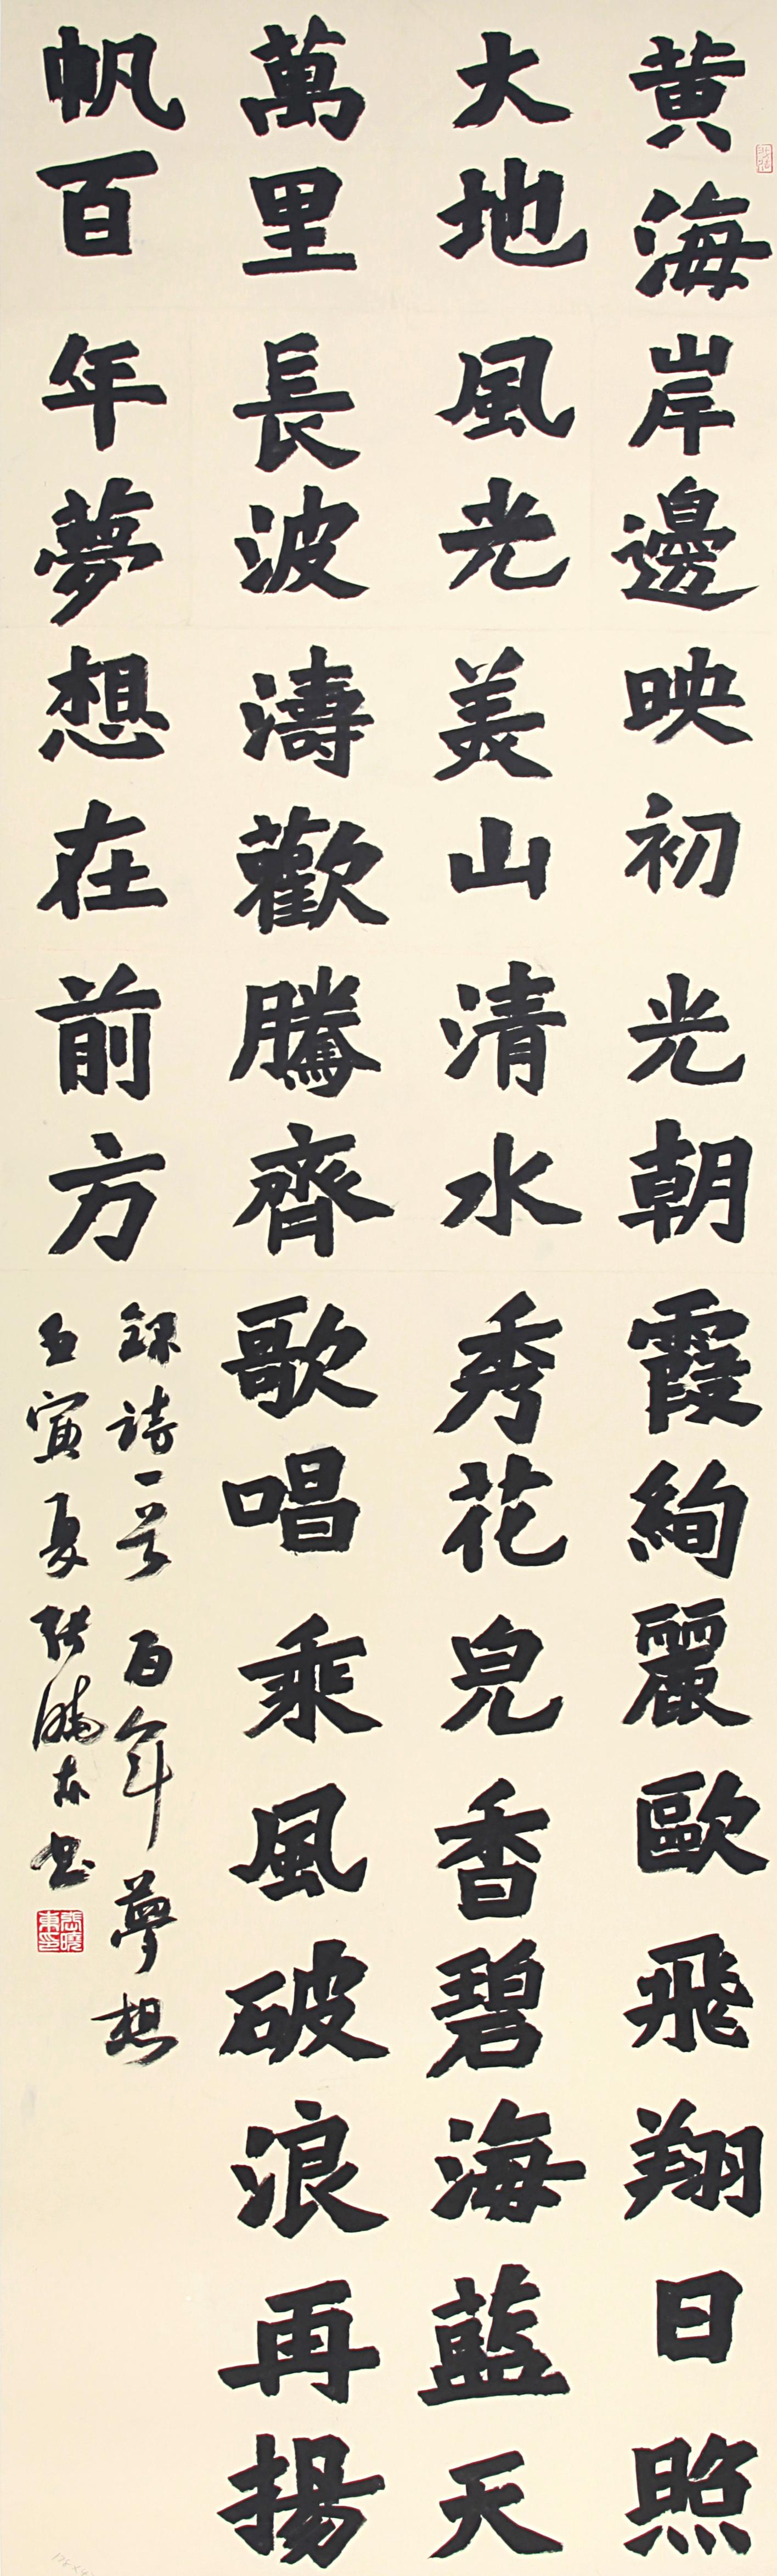 黄海岸邊映初光朝霞絢麗歐飛翔日照
大地風光美山清水秀花皃香碧海藍天
萬里長波濤歡騰齊歌唱乘風破浪再揚
帆百年夢想在前方
錄詩一首 百年夢想
壬寅夏張曉東書
張曉東印